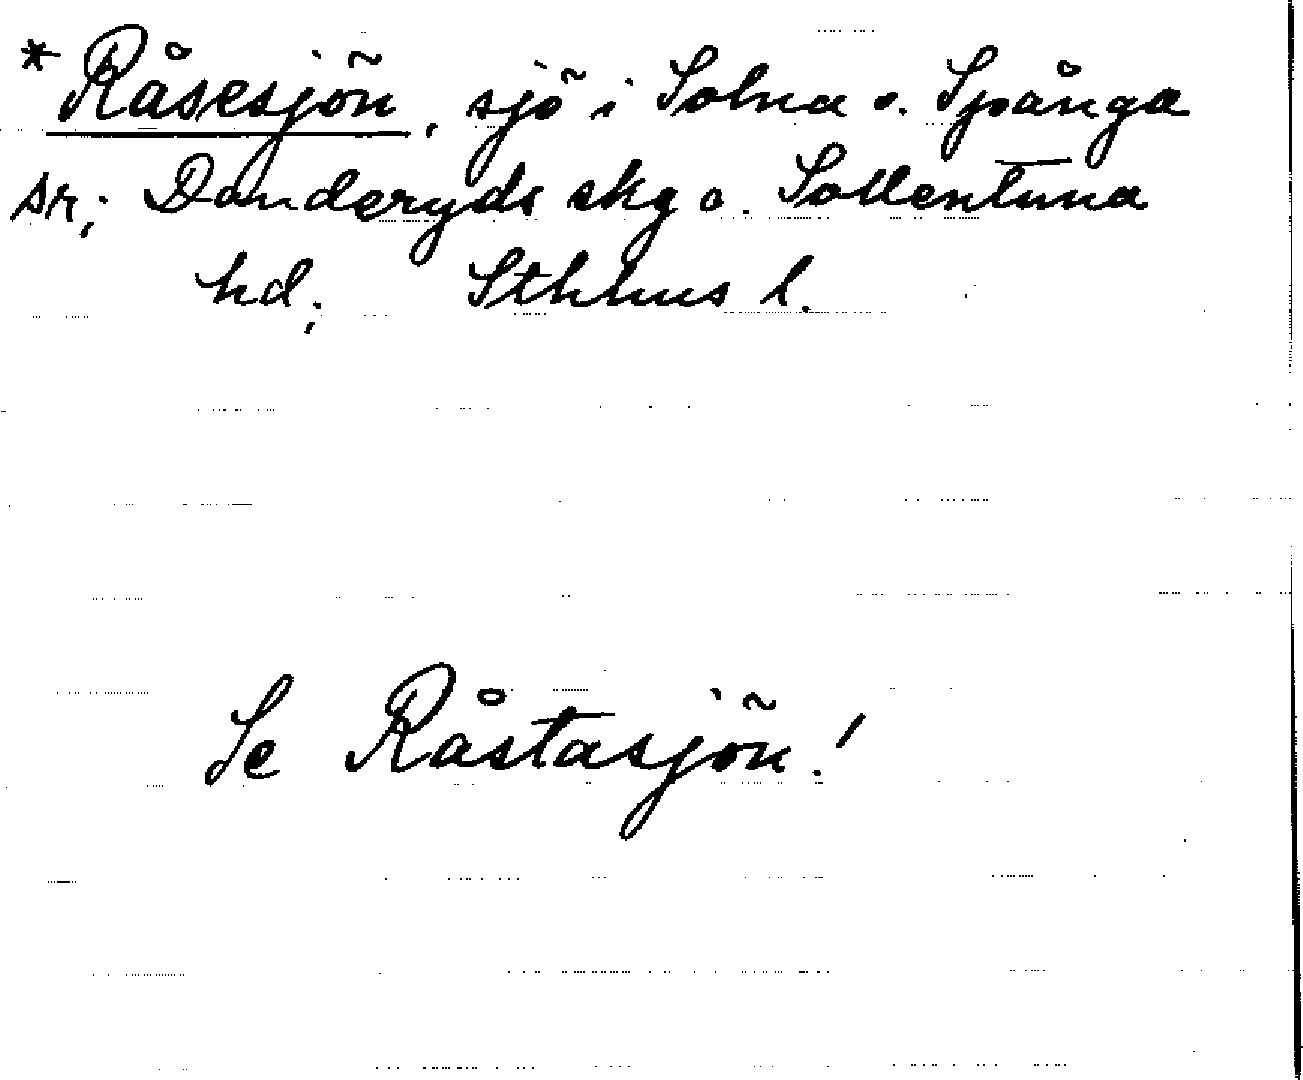 * Råsesjön, sjö i Solna o. Spånga
sr; Danderyds skg o. Sollentuna
hd; Sthlms l.
Se Råstasjön!